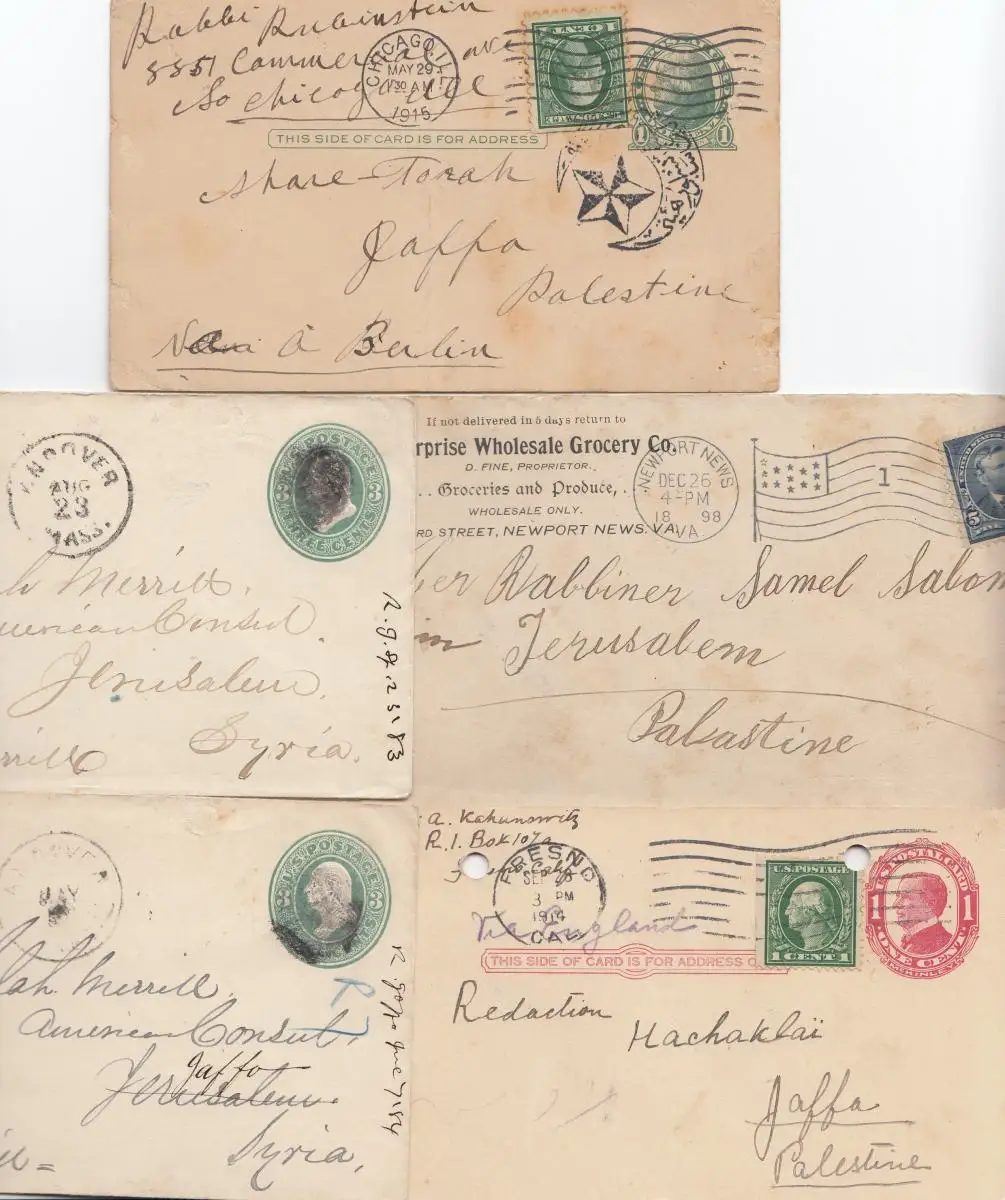 Rabbi Rubinstein
8851 Commercial ave
So chicago Ill
CHICAGO, ILL.
MAY 29
1 30 AM
1915
1 1
THIS SIDE OF CARD IS FOR ADDRESS
Share-Torah
Jaffa
Palestine
Via A Berlin
ANDOVER
AUG
23
MASS.
U.S. POSTAGE
3 3
THREE CENTS
h Merrill.
merican Consul.
Jerusalem.
Syria.
rrill
R. g. S. 23. 83
If not delivered in 5 days return to
rprise Wholesale Grocery Co.
D. FINE, PROPRIETOR.
. . Groceries and Produce, .
WHOLESALE ONLY.
RD STREET, NEWPORT NEWS. VA.
NEWPORT NEWS
DEC 26
4-PM
18 98
VA.
1
5
her Rabbiner Samel Salon
im Jerusalem
Palastine
ANDOVER
MAY
U.S. POSTAGE
3 3
lah Merrill.
American Consul,
Jaffa
Jerusalem.
Syria,
R
a. Kahanowitz
R. 1. Box 107a
Fresno Calif
FRESNO
SEP 28
3 PM
1914
CAL.
Via England
U.S. POSTAGE
1 CENT 1
U.S. POSTAL CARD
1 1
ONE CENT
McKINLEY
THIS SIDE OF CARD IS FOR ADDRESS O
Redaction
Hachaklaï
Jaffa
Palestine